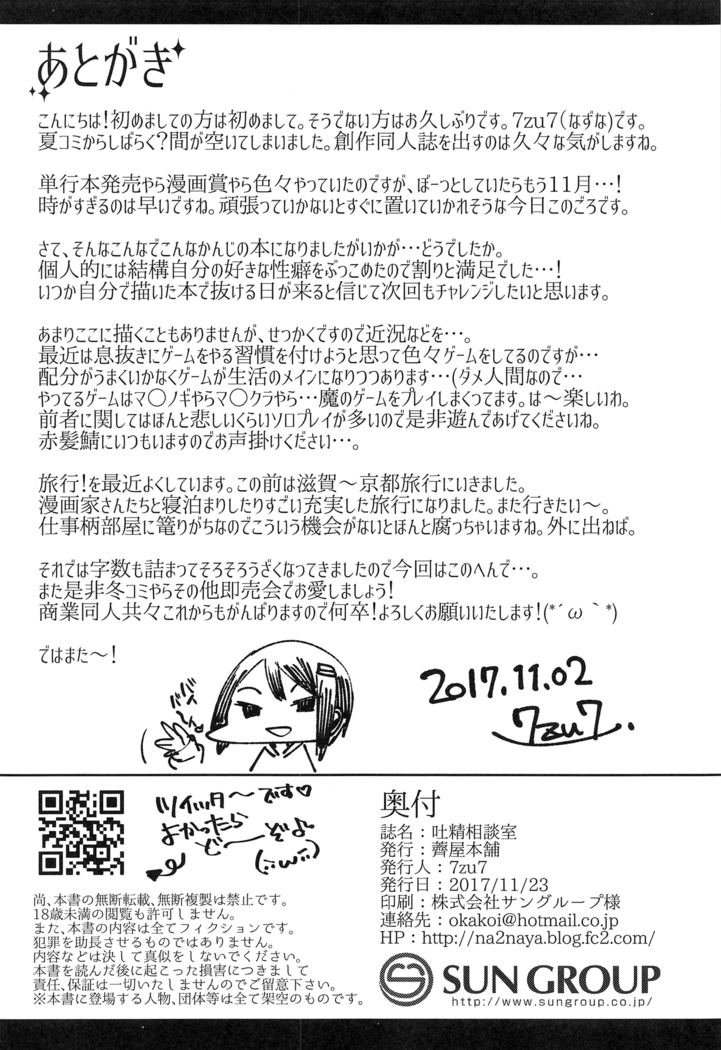 あとがき
こんにちは!初めましての方は初めまして。そうでない方はお久しぶりです。7zu7(なずな)です。
夏コミからしばらく?間が空いてしまいました。創作同人誌を出すのは久々な気がしますね。
単行本発売やら漫画賞やら色々やっていたのですが、ぼーっとしていたらもう11月…!
時がすぎるのは早いですね。頑張っていかないとすぐに置いていかれそうな今日このごろです。
さて、そんなこんなでこんなかんじの本になりましたがいかが…どうでしたか。
個人的には結構自分の好きな性癖をぶっこめたので割りと満足でした…!
いつか自分で描いた本で抜ける日が来ると信じて次回もチャレンジしたいと思います。
あまりここに描くこともありませんが、せっかくですので近況などを…。
最近は息抜きにゲームをやる習慣を付けようと思って色々ゲームをしてるのですが…
配分がうまくいかなくゲームが生活のメインになりつつあります…(ダメ人間なので…
やってるゲームはマ〇ノギやらマ〇クラやら…魔のゲームをプレイしまくってます。は〜楽しいわ。
前者に関してはほんと悲しいくらいソロプレイが多いので是非遊んであげてくださいね。
赤髪鯖にいつもいますのでお声掛けください…。
旅行!を最近よくしています。この前は滋賀〜京都旅行にいきました。
漫画家さんたちと寝泊まりしたりすごい充実した旅行になりました。また行きたい〜。
仕事柄部屋に篭りがちなのでこういう機会がないとほんと腐っちゃいますね。外に出ねば。
それでは字数も詰まってそろそろうざくなってきましたので今回はこのへんで…。
また是非冬コミやらその他即売会でお愛しましょう!
商業同人共々これからもがんばりますので何卒!よろしくお願いいたします!(*´ω｀*)
ではまた〜!
バイバイ
2017.11.02
7zu7.
ツイッタ〜です♡
よかったら
ど〜ぞよ
(:ω:)
尚、本書の無断転載、無断複製は禁止です。
18歳未満の閲覧も許可しません。
また、本書の内容は全てフィクションです。
犯罪を助長させるものではありません。
内容などは決して真似をしないでください。
本書を読んだ後に起こった損害につきまして
責任、保証は一切いたしませんのでご留意下さい。
※本書に登場する人物、団体等は全て架空のものです。
奥付
誌名：吐精相談室
発行：薺屋本舗
発行人：7zu7
発行日：2017/11/23
印刷：株式会社サングループ様
連絡先：okakoi@hotmail.co.jp
HP：http://na2naya.blog.fc2.com/
SUN GROUP
http://www.sungroup.co.jp/